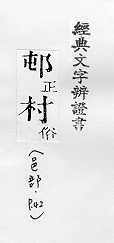 經典文字辨證書
邨正
村俗
(邑部·P.42)